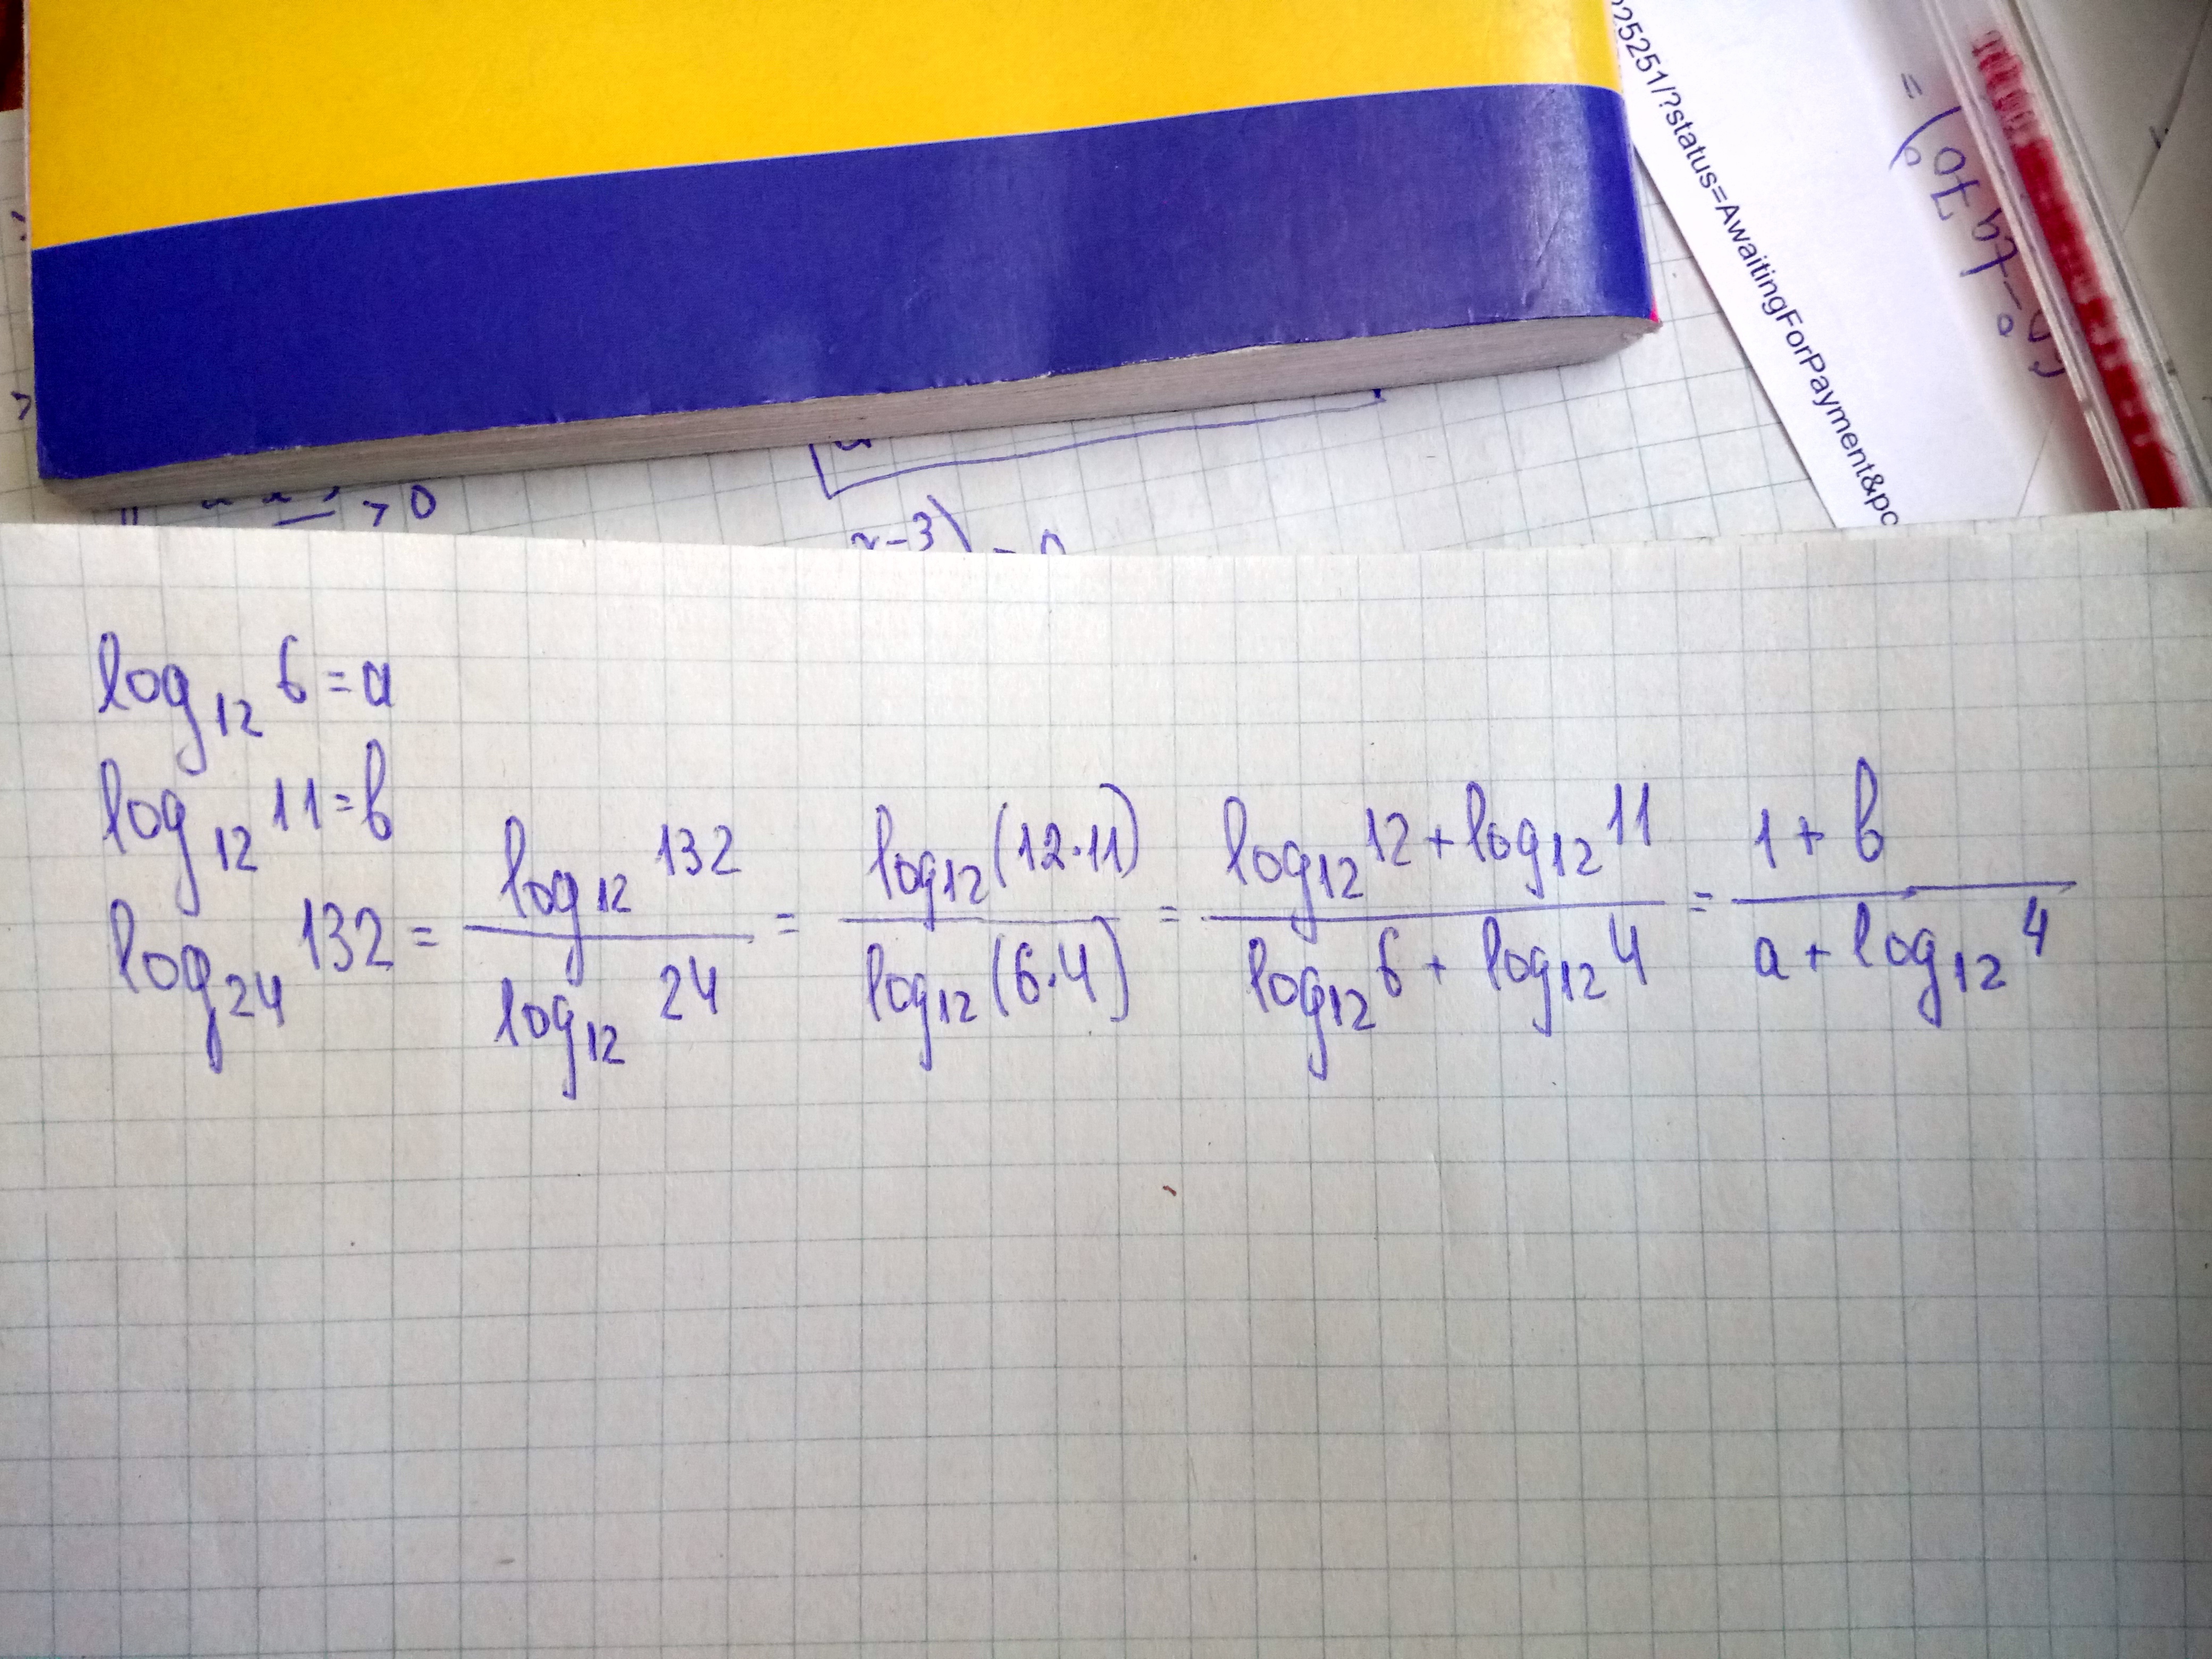 225251/?status=AwaitingForPayment&po
> 0
x-3) = 0
log₁₂ 6 = a
log₁₂ 11 = b
log₂₄ 132 = log₁₂ 132 / log₁₂ 24 = log₁₂(12·11) / log₁₂(6·4) = log₁₂ 12 + log₁₂ 11 / log₁₂ 6 + log₁₂ 4 = 1 + b / a + log₁₂ 4